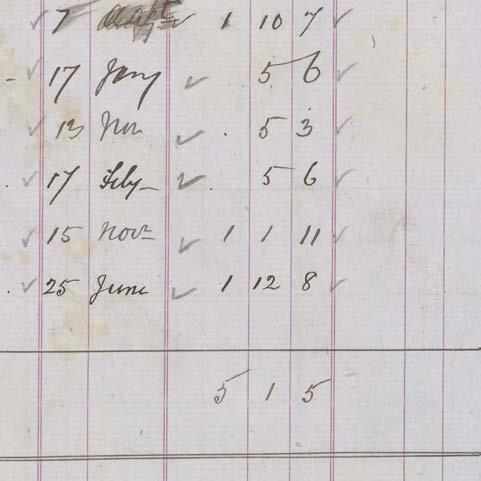 7 1 10 7
17 Jany 5 6
13 Nov 5 3
17 Feby 5 6
15 Novr 1 1 11
25 June 1 12 8
5 1 5